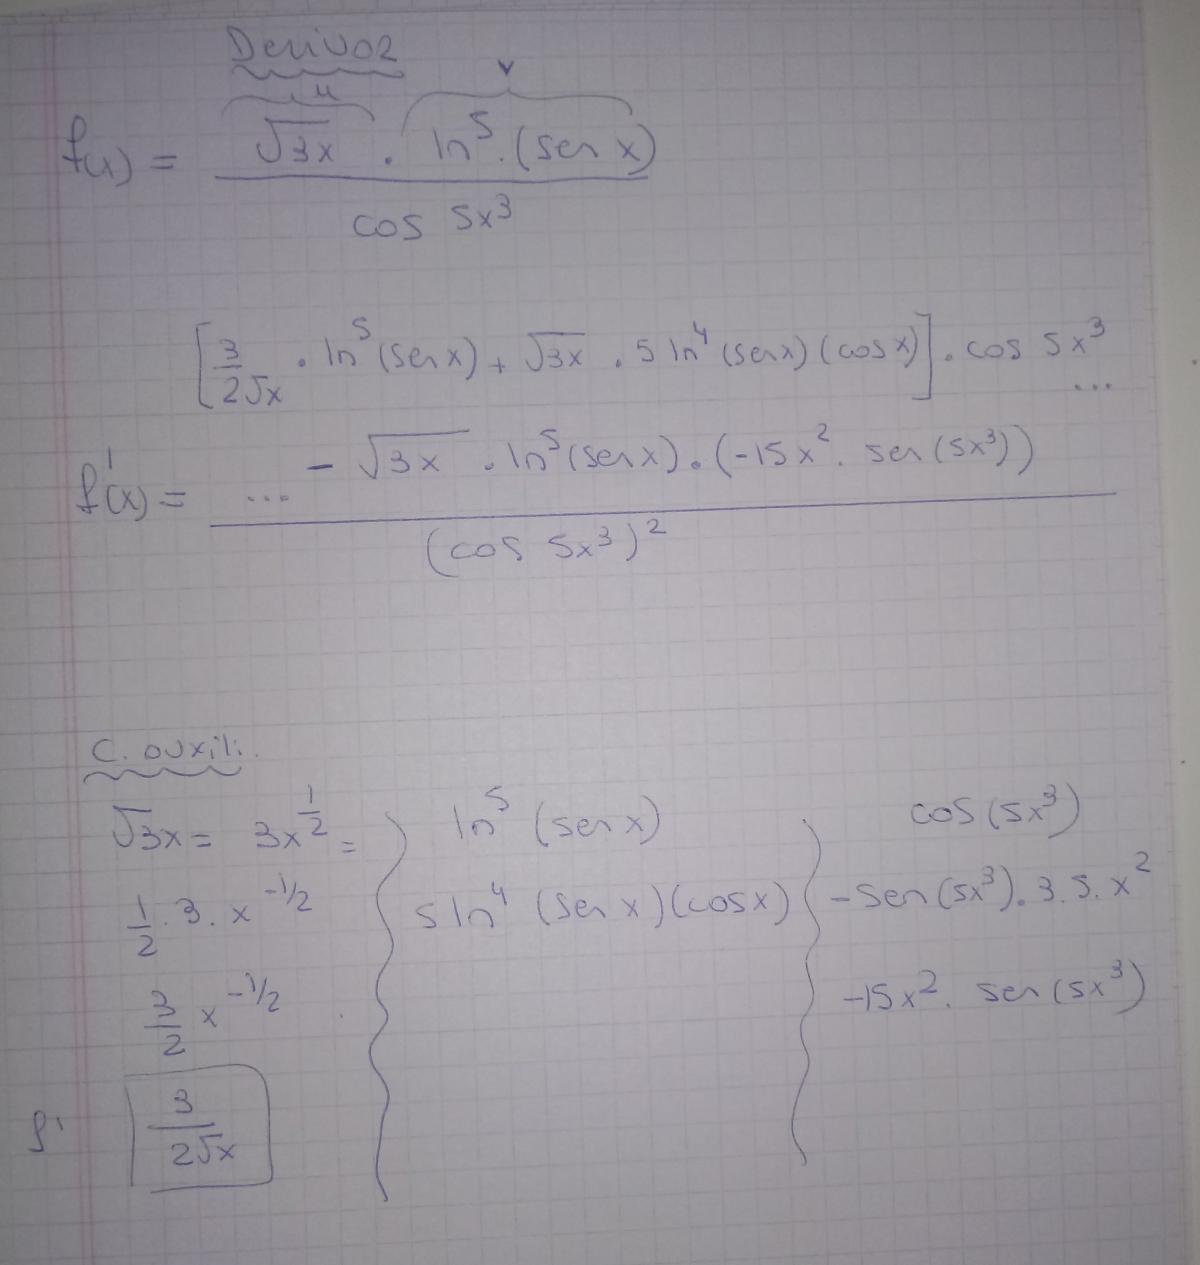 Derivar
u v
f(x) = √3x . ln⁵.(sen x)
cos 5x³
[3/2√x . ln⁵(sen x) + √3x . 5 ln⁴ (sen x) (cos x)] . cos 5x³ ...
f'(x) = ... - √3x . ln⁵(sen x) . (-15x² . sen (5x³))
(cos 5x³)²
C. auxili.
√3x = 3x^1/2 =
1/2 . 3 . x^-1/2
3/2 x^-1/2
f' 3/2√x
ln⁵ (sen x)
5 ln⁴ (sen x) (cos x)
cos (5x³)
-sen (5x³) . 3 . 5 . x²
-15x² . sen (5x³)